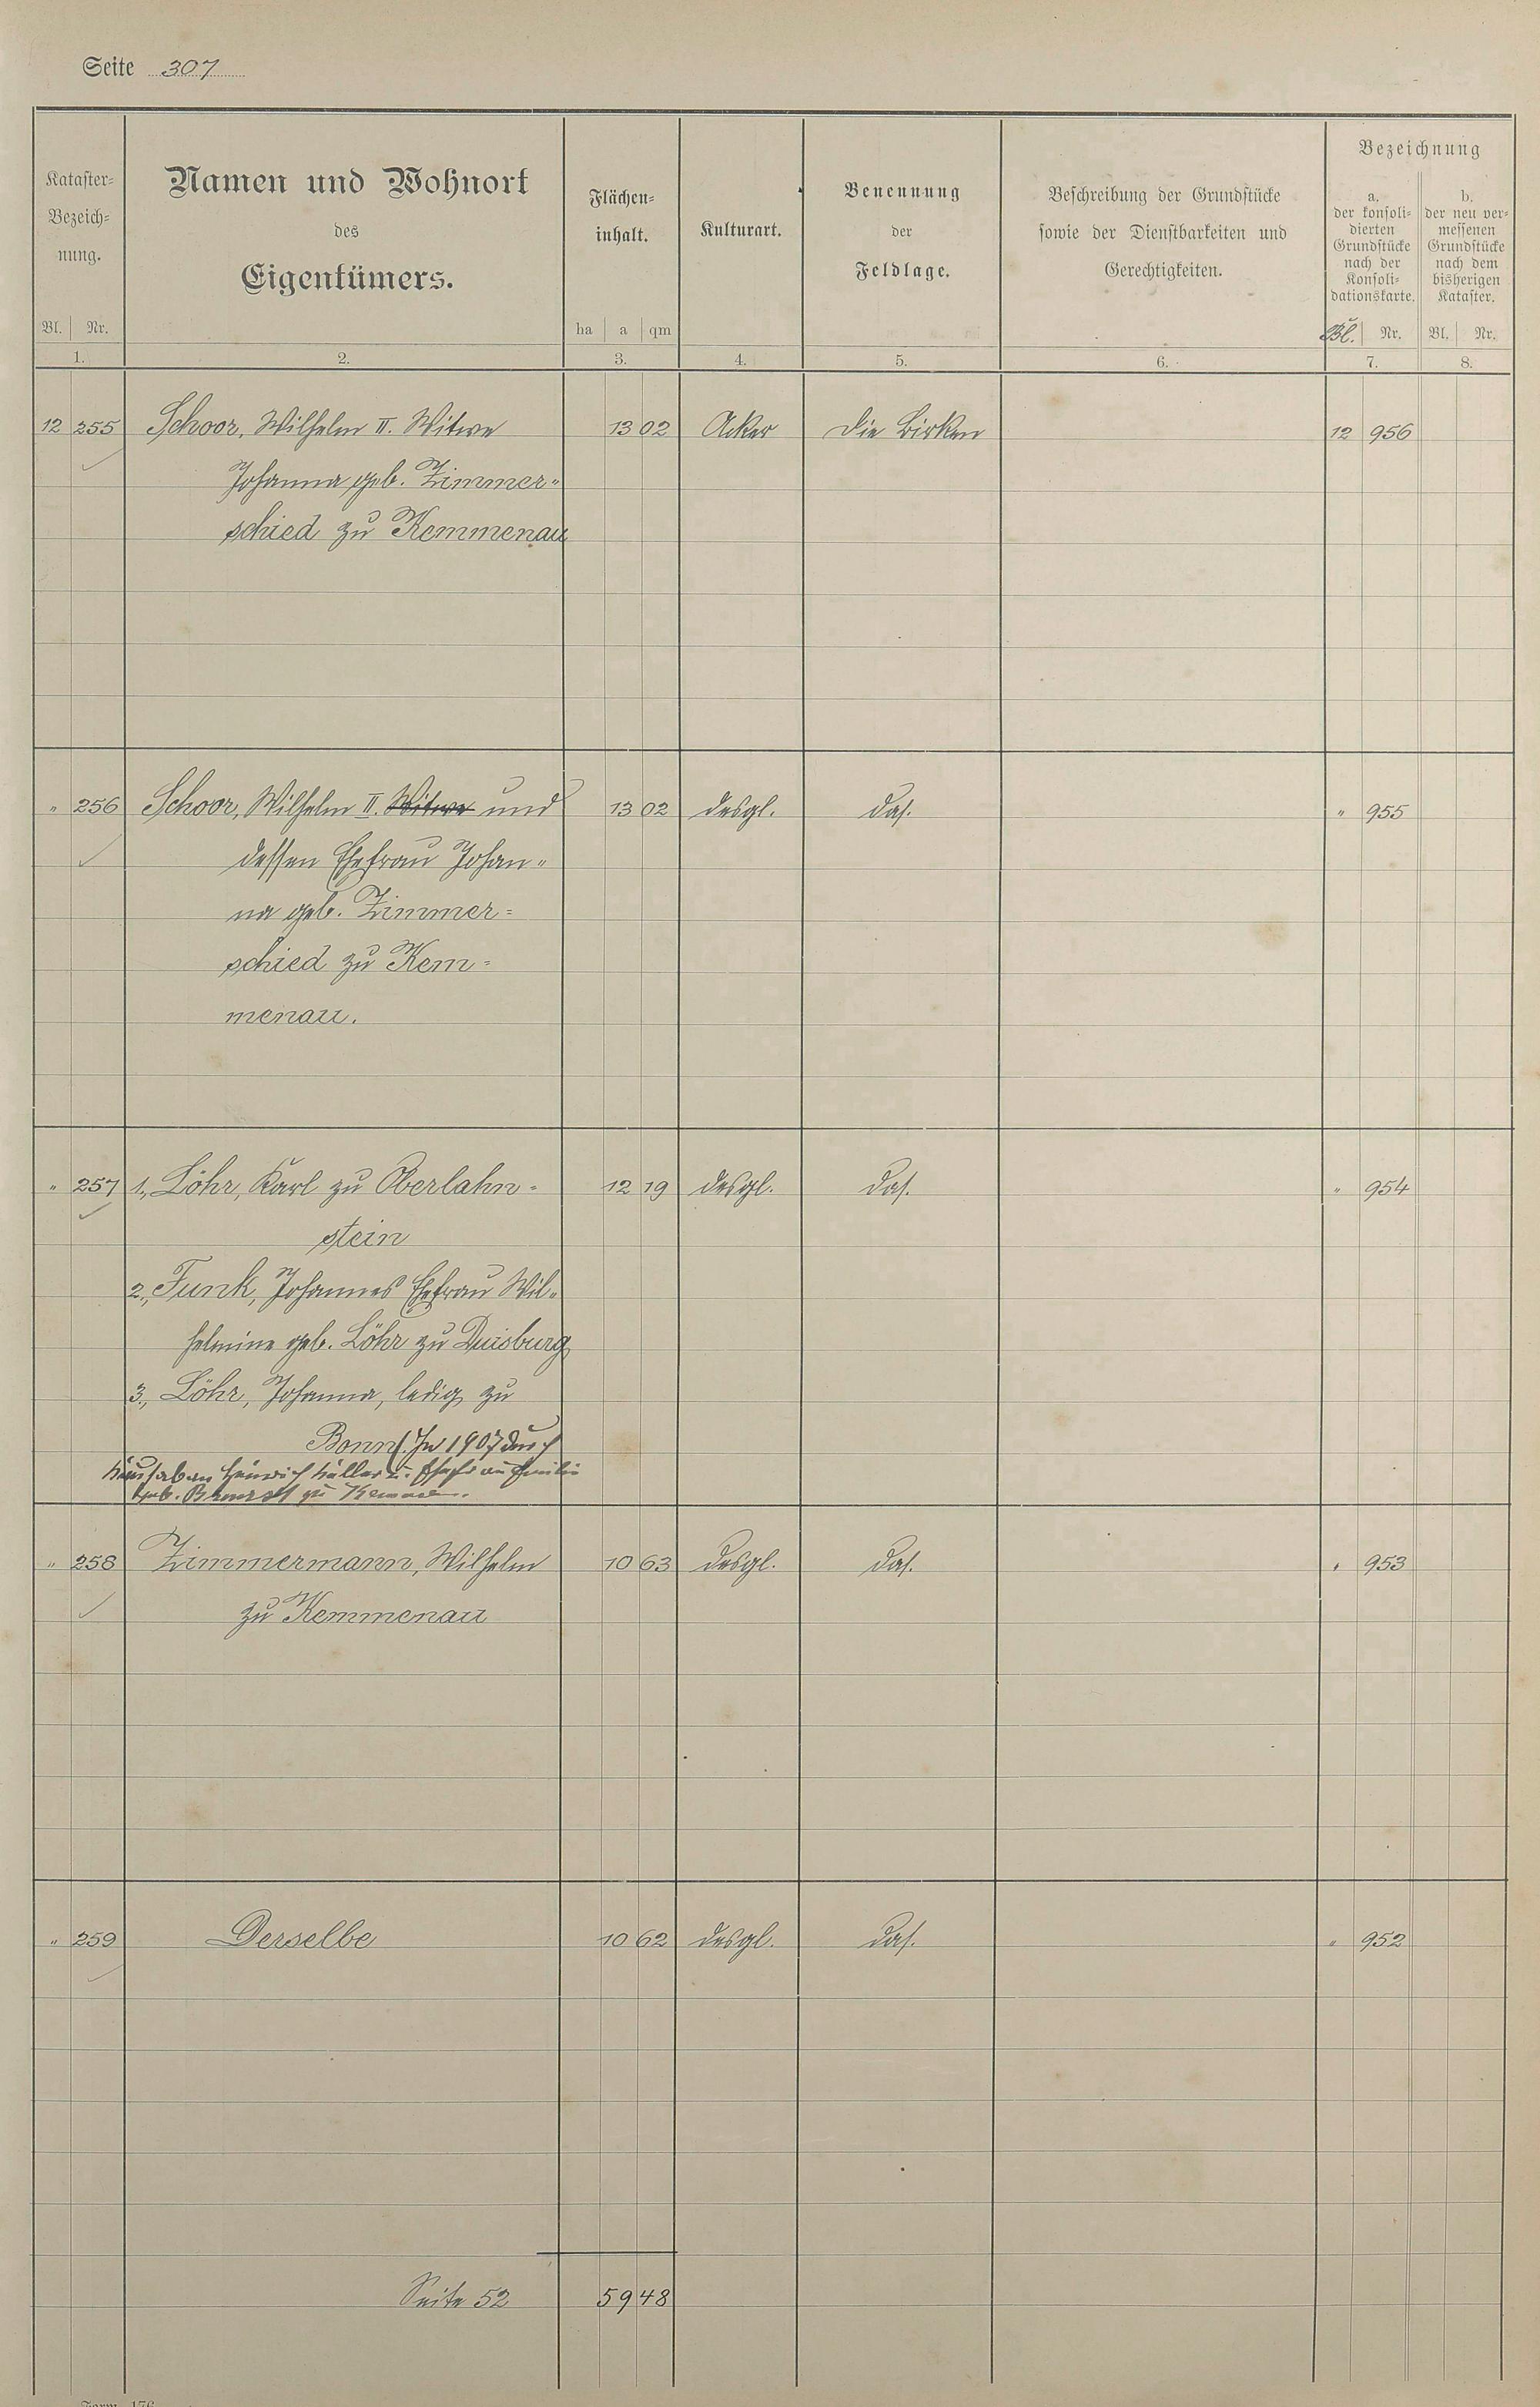 Seite 307
Kataster-
Bezeich-
nung.
Bl. Nr.
1.
Namen und Wohnort
des
Eigentümers.
2.
Flächen-
inhalt.
ha a qm
3.
Kulturart.
4.
Benennung
der
Feldlage.
5.
Beschreibung der Grundstücke
sowie der Dienstbarkeiten und
Gerechtigkeiten.
6.
Bezeichnung
a.
der konsoli-
dierten
Grundstücke
nach der
Konsoli-
dationskarte.
Bl. Nr.
7.
b.
der neu ver-
messenen
Grundstücke
nach dem
bisherigen
Kataster.
Bl. Nr.
8.
12 255 Schoor, Wilhelm II. Witwe 13 02 Acker Die Birken 12 956
Johanna geb. Zimmer-
schied zu Kemmenau
" 256 Schoor, Wilhelm II. Witwe und 13 02 desgl. das. " 955
dessen Ehefrau Johan-
na geb. Zimmer-
schied zu Kem-
menau.
" 257 1., Löhr, Karl zu Oberlahn- 12 19 desgl. das. " 954
stein
2., Funk, Johannes Ehefrau Wil-
helmine geb. Löhr zu Duisburg
3., Löhr, Johanna, ledig zu
Bonn. In 1907 durch
Heinrich
geb. zu
" 258 Zimmermann, Wilhelm 10 63 desgl. das. " 953
zu Kemmenau
" 259 Derselbe 10 62 desgl. das. " 952
Seite 52 59 48
Form. 176